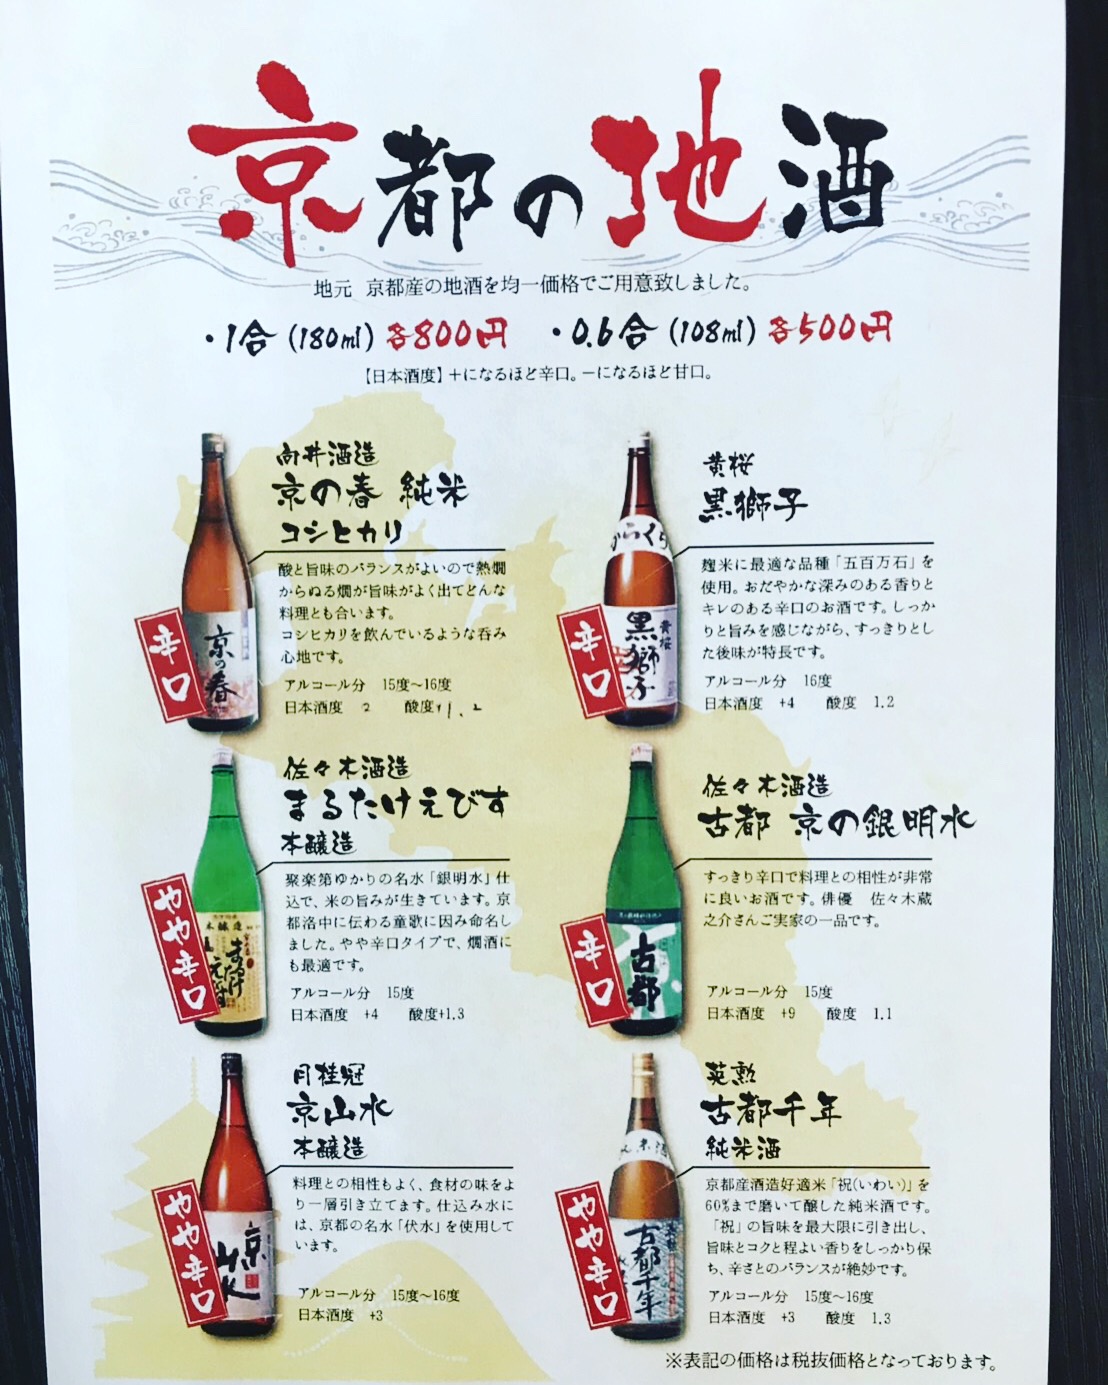 京都の地酒
地元 京都産の地酒を均一価格でご用意致しました。
・1合(180ml)各800円 ・0.6合(108ml)各500円
【日本酒度】＋になるほど辛口。－になるほど甘口。
向井酒造
京の春 純米
コシヒカリ
酸と旨味のバランスがよいので熱燗
からぬる燗が旨味がよく出てどんな
料理とも合います。
コシヒカリを飲んでいるような呑み
心地です。
アルコール分 15度～16度
日本酒度 2 酸度+1.2
辛口
京の春
黄桜
黒獅子
麹米に最適な品種「五百万石」を
使用。おだやかな深みのある香りと
キレのある辛口のお酒です。しっか
りと旨みを感じながら、すっきりとし
た後味が特長です。
アルコール分 16度
日本酒度 +4 酸度 1.2
辛口
からくち
黄桜
黒獅子
佐々木酒造
まるたけえびす
本醸造
聚楽第ゆかりの名水「銀明水」仕
込で、米の旨みが生きています。京
都洛中に伝わる童歌に因み命名し
ました。やや辛口タイプで、燗酒に
も最適です。
アルコール分 15度
日本酒度 +4 酸度+1.3
やや辛口
本醸造
まるたけ
佐々木酒造
古都 京の銀明水
すっきり辛口で料理との相性が非常
に良いお酒です。俳優 佐々木蔵
之介さんご実家の一品です。
アルコール分 15度
日本酒度 +9 酸度 1.1
辛口
古都
月桂冠
京山水
本醸造
料理との相性もよく、食材の味をよ
り一層引き立てます。仕込み水に
は、京都の名水「伏水」を使用して
います。
アルコール分 15度～16度
日本酒度 +3
やや辛口
京山水
英勲
古都千年
純米酒
京都産酒造好適米「祝(いわい)」を
60%まで磨いて醸した純米酒です。
「祝」の旨味を最大限に引き出し、
旨味とコクと程よい香りをしっかり保
ち、辛さとのバランスが絶妙です。
アルコール分 15度～16度
日本酒度 +3 酸度 1.3
やや辛口
古都千年
※表記の価格は税抜価格となっております。